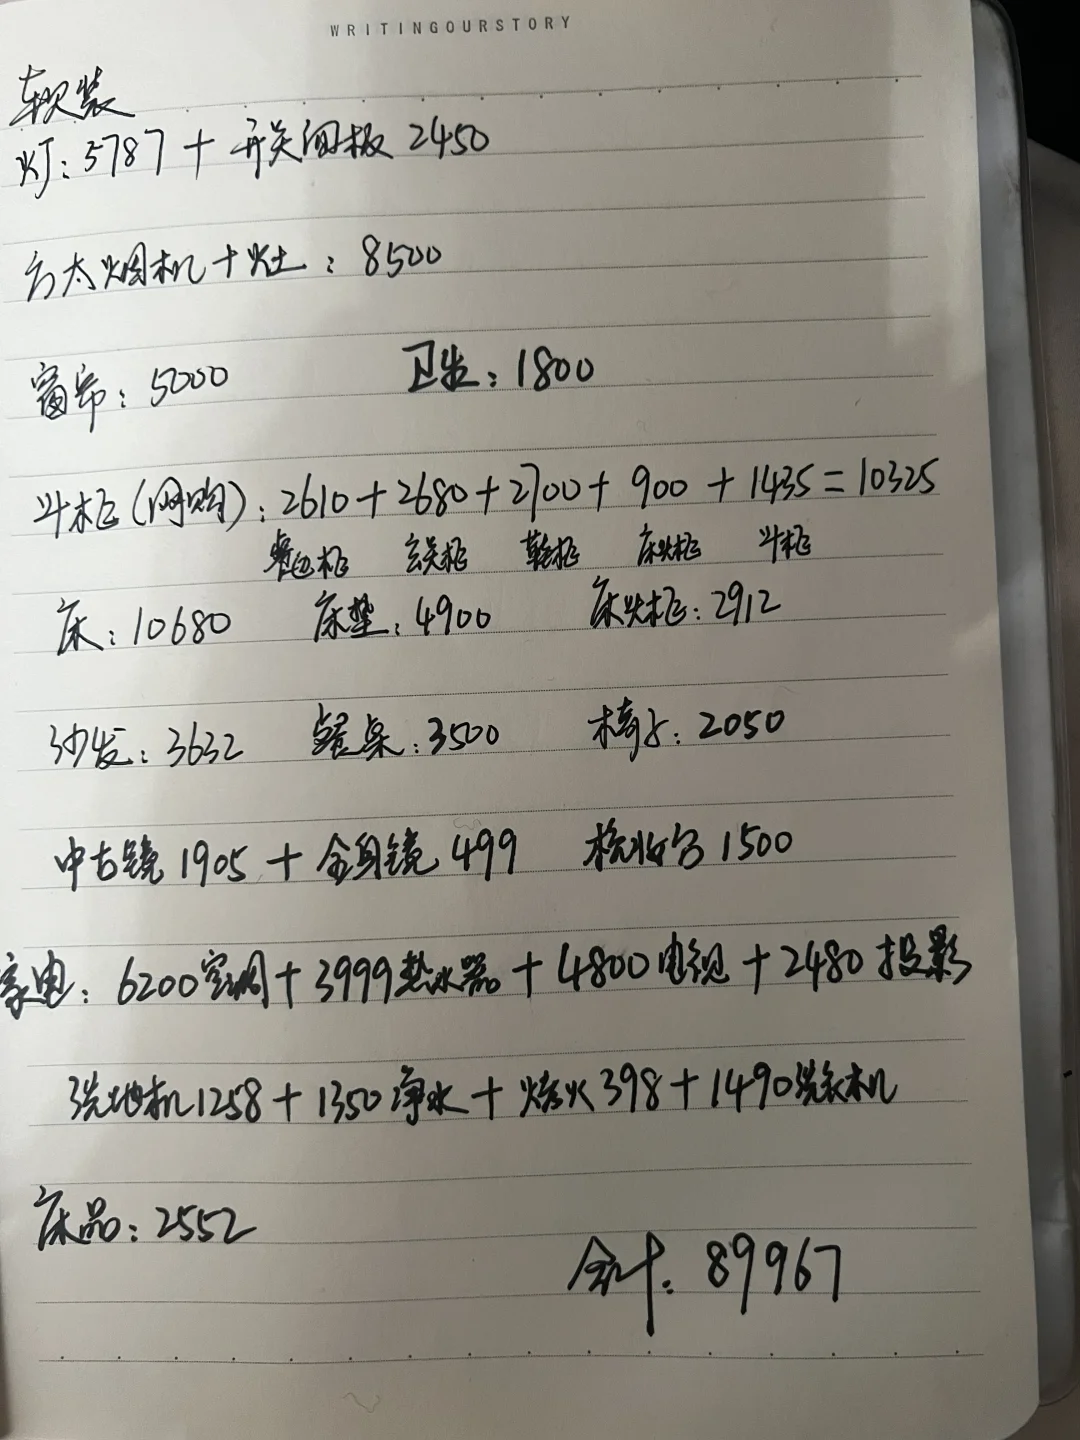 WRITINGOURSTORY
软装
灯：5787 + 开关面板 2450
方太烟机+灶：8500
窗帘：5000 卫生：1800
斗柜(网购)：2610+2680+2700+900+1435=10325
餐边柜 玄关柜 鞋柜 床头柜 斗柜
床：10680 床垫：4900 床头柜：2912
沙发：3632 餐桌：3500 椅子：2050
中古镜 1905 + 全身镜 499 1500
家电：6200空调+3999热水器+4800电视+2480投影
洗地机1258+1350净水+烤火398+1490洗衣机
床品：2552
合计：89967